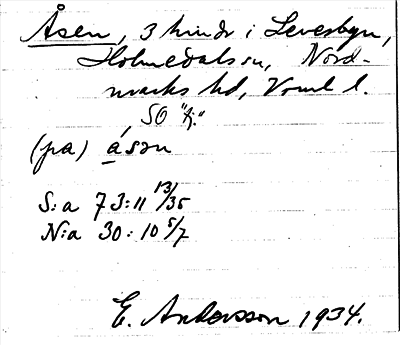 Åsen, 3 hmdr i Leverbyn,
Holmedals sn, Nord-
marks hd, Vrml l.
SO "k."
(pa) ásən
S:a 73:11 13/35
N:a 30:10 5/7
E. Andersson 1934.